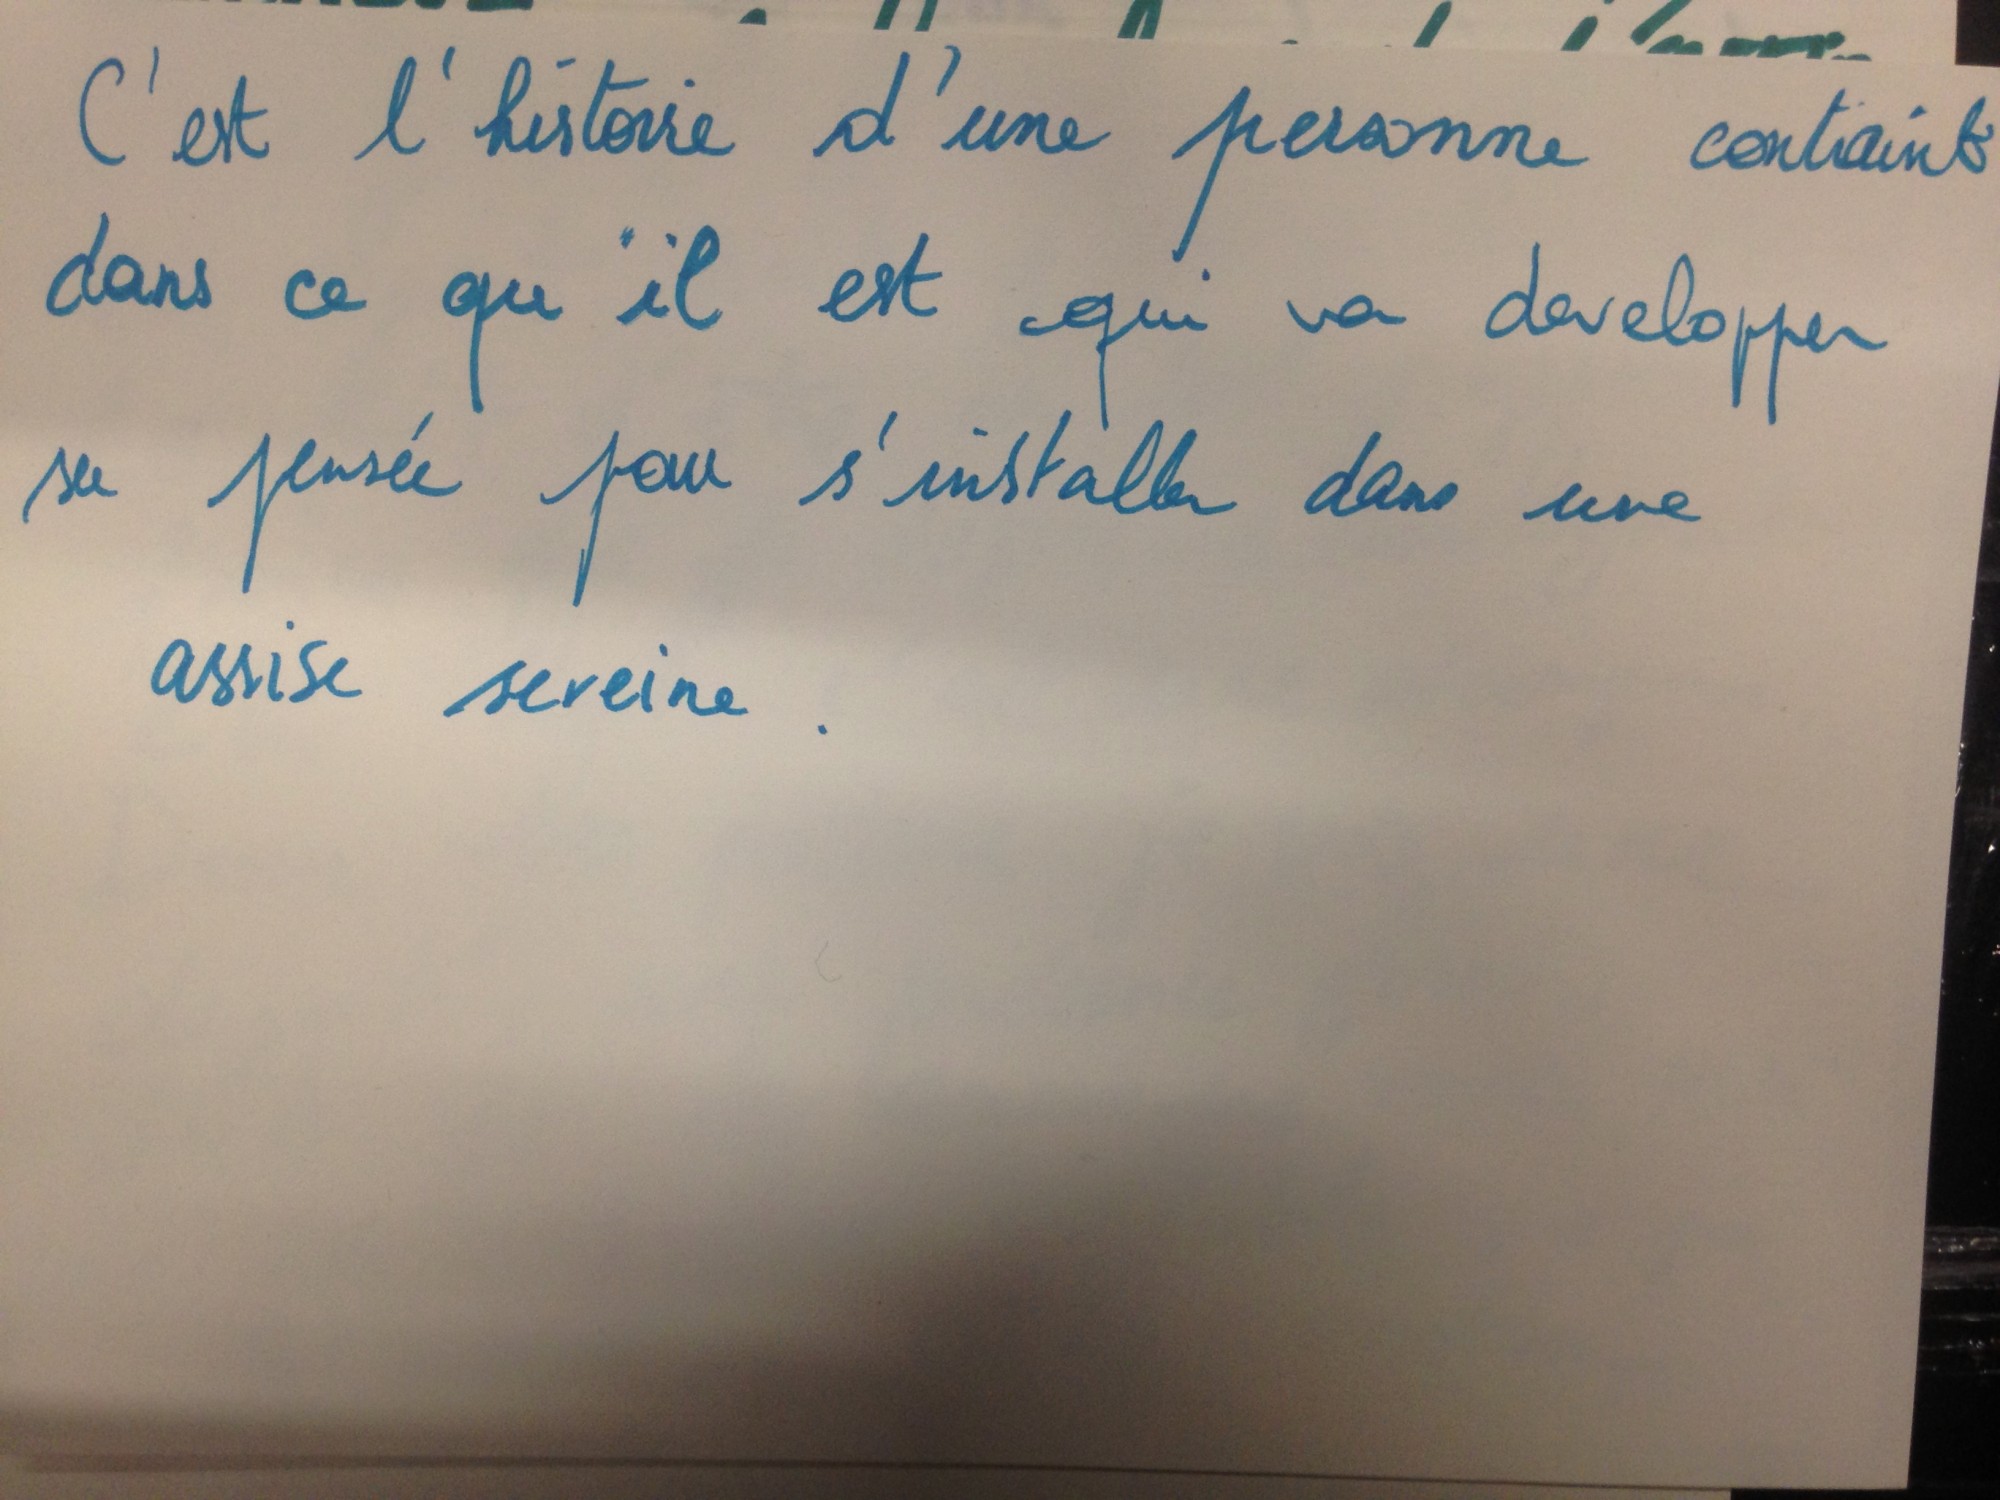 C'est l'histoire d'une personne contraint
dans ce qu'il est qui va developper
sa pensée pour s'installer dans une
assise sereine.